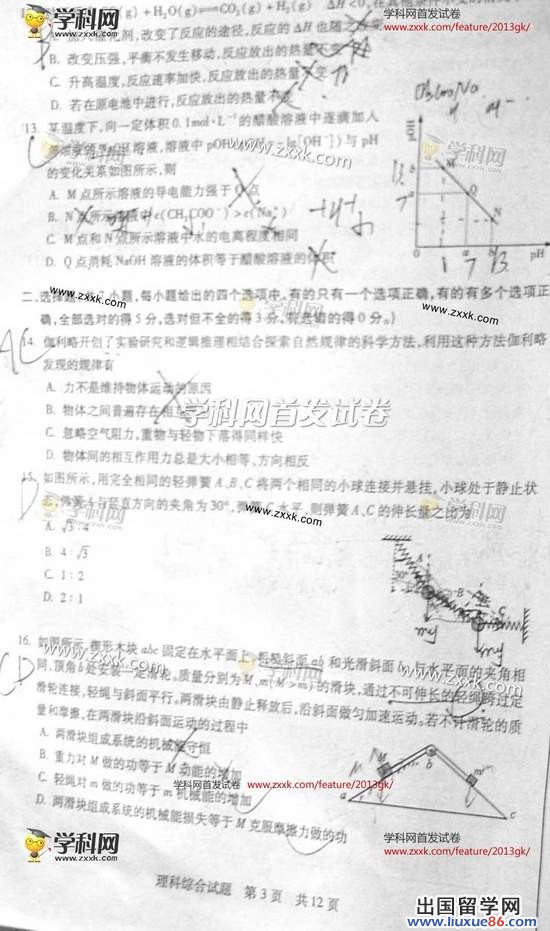 学科网首发试卷
www.zxxk.com/feature/2013gk/
(g)+H₂O(g)⇌CO₂(g)+H₂(g) ΔH<0,
A. 催化剂,改变了反应的途径,反应的ΔH也随之改变
B. 改变压强,平衡不发生移动,反应放出的热量不变
C. 升高温度,反应速率加快,反应放出的热量不变
D. 若在原电池中进行,反应放出的热量不变
13. 某温度下,向一定体积0.1mol·L⁻¹的醋酸溶液中逐滴加入
溶液,溶液中pOH [OH⁻])与pH
的变化关系如图所示,则
A. M点所示溶液的导电能力强于Q点
B. N点所示溶液中c(CH₃COO⁻)>c(Na⁺)
C. M点和N点所示溶液中水的电离程度相同
D. Q点消耗NaOH溶液的体积等于醋酸溶液的体积
M
Q
N
pH
学科网
www.zxxk.com
二、选择题:共7小题,每小题给出的四个选项中,有的只有一个选项正确,有的有多个选项正
确,全部选对的得5分,选对但不全的得3分,有选错的得0分。)
14. 伽利略开创了实验研究和逻辑推理相结合探索自然规律的科学方法,利用这种方法伽利略
发现的规律有
A. 力不是维持物体运动的原因
B. 物体之间普遍存在相互
C. 忽略空气阻力,重物与轻物下落得同样快
D. 物体间的相互作用力总是大小相等、方向相反
学科网首发试卷
15. 如图所示,用完全相同的轻弹簧A、B、C将两个相同的小球连接并悬挂,小球处于静止状
态,弹簧A与竖直方向的夹角为30°,弹簧C水平,则弹簧A、C的伸长量之比为
A. √3:4
B. 4:√3
C. 1:2
D. 2:1
学科网
www.zxxk.com
16. 如图所示,楔形木块abc固定在水平面上,粗糙斜面ab和光滑斜面bc与水平面的夹角相
同,顶角b处安装一定滑轮。质量分别为M、m(M>m)的滑块,通过不可伸长的轻绳跨过定
滑轮连接,轻绳与斜面平行。两滑块由静止释放后,沿斜面做匀加速运动。若不计滑轮的质
量和摩擦,在两滑块沿斜面运动的过程中
A. 两滑块组成系统的机械能守恒
B. 重力对M做的功等于M动能的增加
C. 轻绳对m做的功等于m机械能的增加
D. 两滑块组成系统的机械能损失等于M克服摩擦力做的功
M
b
m
a
c
www.zxxk.com/feature/2013gk/
学科网
www.zxxk.com
学科网首发试卷
www.zxxk.com/feature/2013gk/
理科综合试题 第3页 共12页
出国留学网
www.liuxue86.com